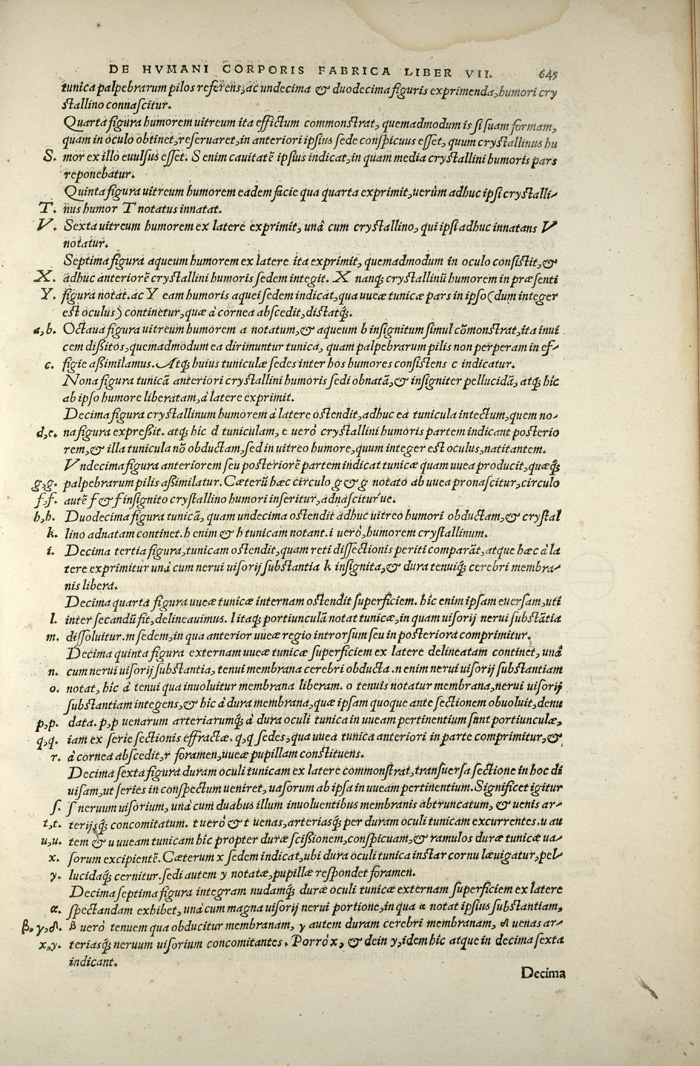 DE HVMANI CORPORIS FABRICA LIBER VII. 645
tunica palpebrarum pilos referens, ac undecima & duodecima figuris exprimenda, humori cry
stallino connascitur.
Quarta figura humorem uitreum ita effictum commonstrat, quemadmodum is si suam formam,
quam in oculo obtinet, reseruaret, in anteriori ipsius sede conspicuus esset, quum crystallinus hu
S. mor ex illo euulsus esset. S enim cauitatē ipsius indicat, in quam media crystallini humoris pars
reponebatur.
Quinta figura uitreum humorem eadem facie qua quarta exprimit, uerùm adhuc ipsi crystalli-
T. nus humor T notatus innatat.
V. Sexta uitreum humorem ex latere exprimit, unà cum crystallino, qui ipsi adhuc innatans V
notatur.
Septima figura aqueum humorem ex latere ita exprimit, quemadmodum in oculo consistit, &
X. adhuc anteriorē crystallini humoris sedem integit. X nanq; crystallinū humorem in præsenti
Y. figura notat. ac Y eam humoris aquei sedem indicat, qua uueæ tunicæ pars in ipso (dum integer
est oculus) continetur, quæ à cornea abscedit, distatq́;.
a, b. Octaua figura uitreum humorem a notatum, & aqueum b insignitum simul cōmonstrat, ita inui
cem dissitos, quemadmodum ea dirimuntur tunica, quam palpebrarum pilis non perperam in ef-
c. figie assimilamus. Atq; huius tuniculæ sedes inter hos humores consistens c indicatur.
Nona figura tunicā anteriori crystallini humoris sedi obnatā, & insigniter pellucidā, atq; hic
ab ipso humore liberatam, à latere exprimit.
Decima figura crystallinum humorem à latere ostendit, adhuc ea tunicula intectum, quem no-
d, e. na figura expressit. atq; hic d tuniculam, e uerò crystallini humoris partem indicant posterio
rem, & illa tunicula nō obductam, sed in uitreo humore, quum integer est oculus, natitantem.
Vndecima figura anteriorem seu posteriorē partem indicat tunicæ quam uuea producit, quæq́;
g, g. palpebrarum pilis assimilatur. Cæterū hæc circulo g & g notato ab uuea pronascitur, circulo
f, f. autē f & f insignito crystallino humori inseritur, adnasciturue.
h, h. Duodecima figura tunicā, quam undecima ostendit adhuc uitreo humori obductam, & crystal
k. lino adnatam continet. h enim & h tunicam notant. i uerò, humorem crystallinum.
i. Decima tertia figura, tunicam ostendit, quam reti dissectionis periti comparāt, atque hæc à la
tere exprimitur unà cum nerui uisorij substantia k insignita, & dura tenuiq́; cerebri membra-
nis libera.
Decima quarta figura uueæ tunicæ internam ostendit superficiem. hic enim ipsam euersam, uti
l. inter secandū fit, delineauimus. l itaq; portiunculā notat tunicæ, in quam uisorij nerui substātia
m. dissoluitur. m sedem, in qua anterior uueæ regio introrsum seu in posteriora comprimitur.
Decima quinta figura externam uueæ tunicæ superficiem ex latere delineatam continet, unà
n. cum nerui uisorij substantia, tenui membrana cerebri obducta. n enim nerui uisorij substantiam
o. notat, hic à tenui qua inuoluitur membrana liberam. o tenuis notatur membrana, nerui uisorij
substantiam integens, & hic à dura membrana, quæ ipsam quoque ante sectionem obuoluit, denu
p, p. data. p, p uenarum arteriarumq́; à dura oculi tunica in uueam pertinentium sunt portiunculæ,
q, q. iam ex serie sectionis effractæ. q, q sedes, qua uuea tunica anteriori in parte comprimitur, &
r. à cornea abscedit, r foramen, uueæ pupillam constituens.
Decima sexta figura duram oculi tunicam ex latere commonstrat, transuersa sectione in hoc di
uisam, ut series in conspectum ueniret, uasorum ab ipsa in uueam pertinentium. Significet igitur
ſ. ſ neruum uisorium, unà cum duabus illum inuoluentibus membranis abtruncatum, & uenis ar-
t, t. terijsq́; concomitatum. t uerò & t uenas, arteriasq́; per duram oculi tunicam excurrentes. u au
u, u. tem & u uueam tunicam hic propter duræ scissionem, conspicuam, & ramulos duræ tunicæ ua-
x. sorum excipientē. Cæterum x sedem indicat, ubi dura oculi tunica instar cornu læuigatur, pel-
y. lucidaq́; cernitur. sedi autem y notatæ, pupillæ respondet foramen.
Decima septima figura integram nudamq́; duræ oculi tunicæ externam superficiem ex latere
α. spectandam exhibet, unà cum magna uisorij nerui portione, in qua α notat ipsius substantiam,
β, γ, δ. β uerò tenuem qua obducitur membranam, γ autem duram cerebri membranam, δ uenas ar-
x, y. teriasq́; neruum uisorium concomitantes. Porrò x, & dein y, idem hic atque in decima sexta
indicant.
Decima